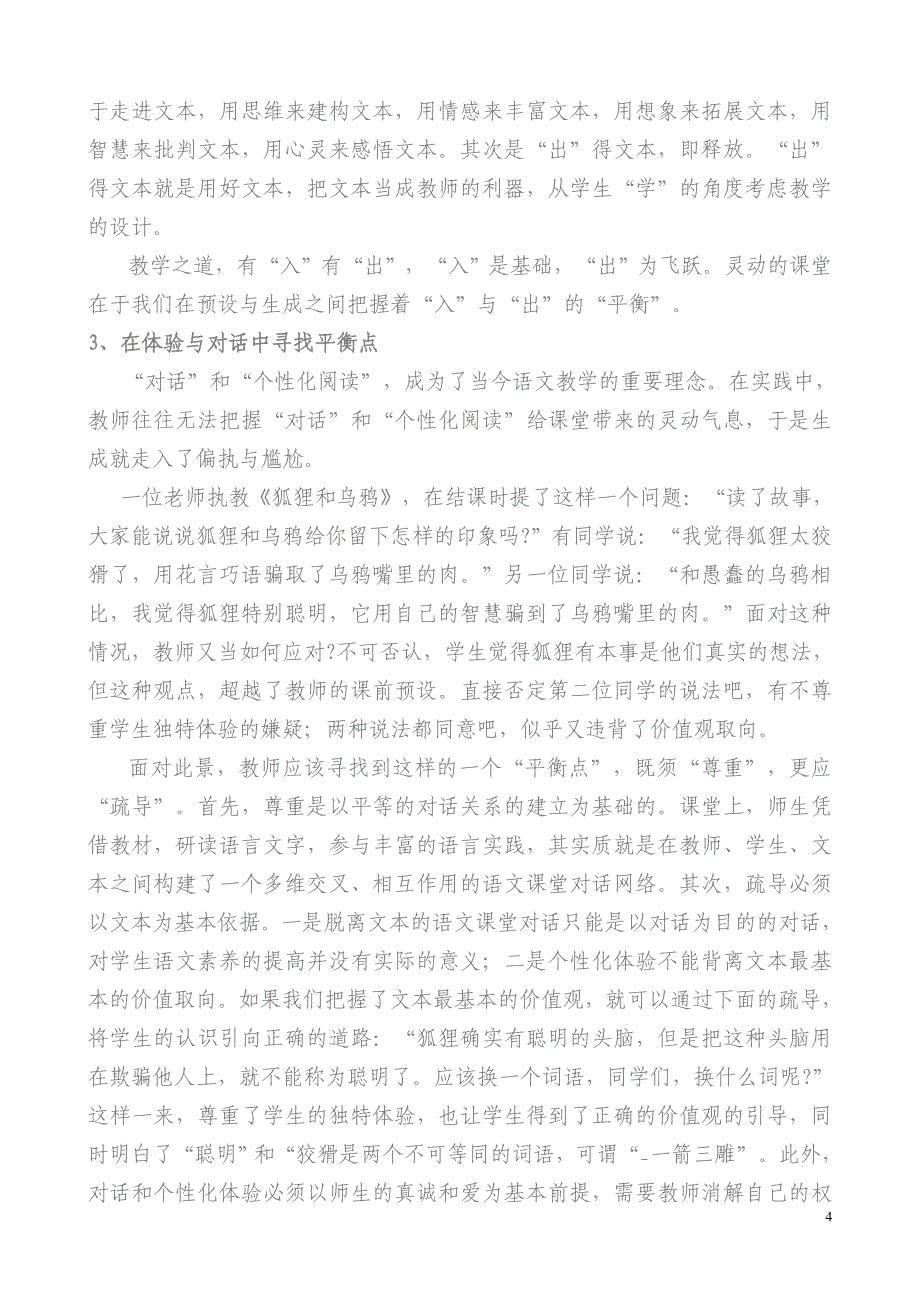 于走进文本，用思维来建构文本，用情感来丰富文本，用想象来拓展文本，用
智慧来批判文本，用心灵来感悟文本。其次是“出”得文本，即释放。“出”
得文本就是用好文本，把文本当成教师的利器，从学生“学”的角度考虑教学
的设计。
教学之道，有“入”有“出”，“入”是基础，“出”为飞跃。灵动的课堂
在于我们在预设与生成之间把握着“入”与“出”的“平衡”。
3、在体验与对话中寻找平衡点
“对话”和“个性化阅读”，成为了当今语文教学的重要理念。在实践中，
教师往往无法把握“对话”和“个性化阅读”给课堂带来的灵动气息，于是生
成就走入了偏执与尴尬。
一位老师执教《狐狸和乌鸦》，在结课时提了这样一个问题：“读了故事，
大家能说说狐狸和乌鸦给你留下怎样的印象吗?”有同学说：“我觉得狐狸太狡
猾了，用花言巧语骗取了乌鸦嘴里的肉。”另一位同学说：“和愚蠢的乌鸦相
比，我觉得狐狸特别聪明，它用自己的智慧骗到了乌鸦嘴里的肉。”面对这种
情况，教师又当如何应对?不可否认，学生觉得狐狸有本事是他们真实的想法，
但这种观点，超越了教师的课前预设。直接否定第二位同学的说法吧，有不尊
重学生独特体验的嫌疑；两种说法都同意吧，似乎又违背了价值观取向。
面对此景，教师应该寻找到这样的一个“平衡点”，既须“尊重”，更应
“疏导”。首先，尊重是以平等的对话关系的建立为基础的。课堂上，师生凭
借教材，研读语言文字，参与丰富的语言实践，其实质就是在教师、学生、文
本之间构建了一个多维交叉、相互作用的语文课堂对话网络。其次，疏导必须
以文本为基本依据。一是脱离文本的语文课堂对话只能是以对话为目的的对话，
对学生语文素养的提高并没有实际的意义；二是个性化体验不能背离文本最基
本的价值取向。如果我们把握了文本最基本的价值观，就可以通过下面的疏导，
将学生的认识引向正确的道路：“狐狸确实有聪明的头脑，但是把这种头脑用
在欺骗他人上，就不能称为聪明了。应该换一个词语，同学们，换什么词呢?”
这样一来，尊重了学生的独特体验，也让学生得到了正确的价值观的引导，同
时明白了“聪明”和“狡猾是两个不可等同的词语，可谓“_一箭三雕”。此外，
对话和个性化体验必须以师生的真诚和爱为基本前提，需要教师消解自己的权
4